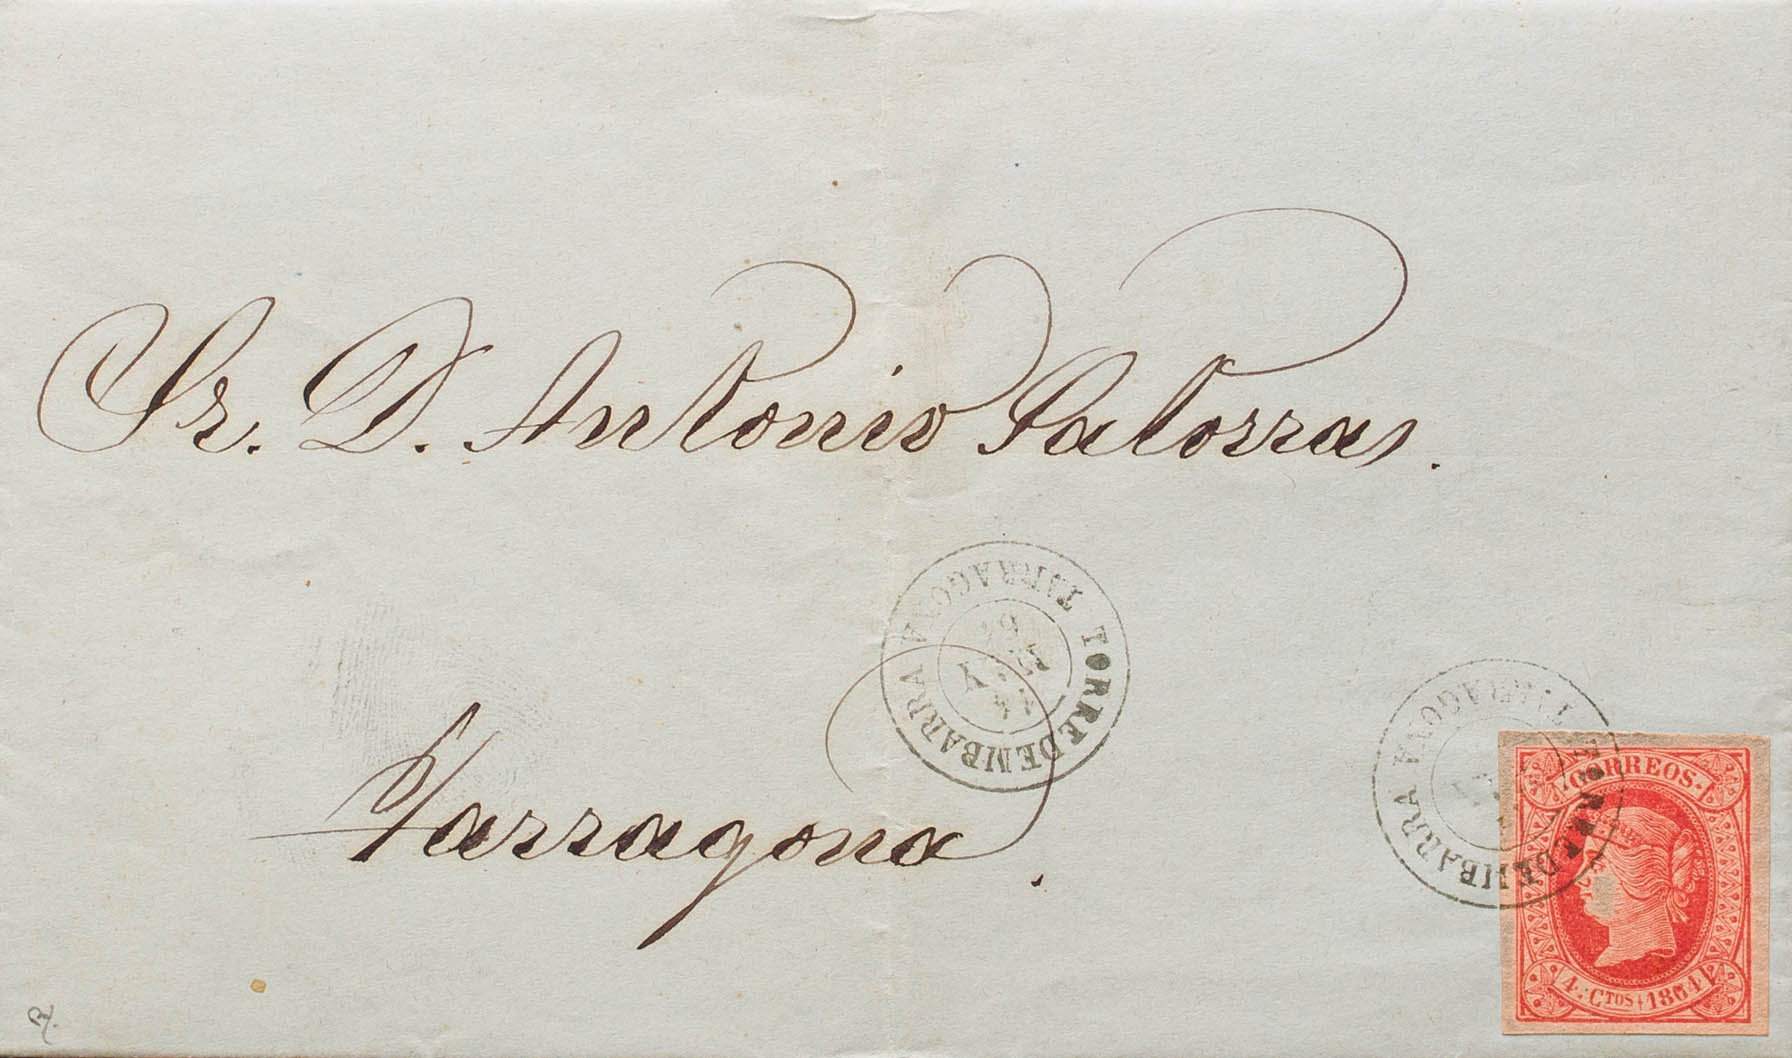 Sr. D. Antonio Satorras.
TORREDEMBARRA
TARRAGONA
Tarragona.
TORREDEMBARRA
TARRAGONA
CORREOS
4 CTOS 1864